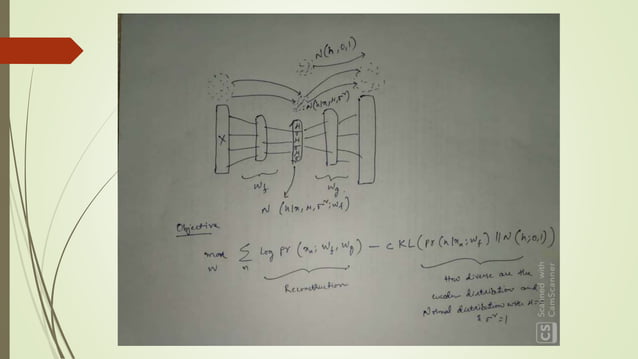 N(h; 0, 1)
N(h|x, μ, σ²)
X
W_f
W_g
N (h|x, μ, σ²; W_f)
Objective
max_W Σ_n log Pr (x_n; W_f, W_g) - c KL (Pr(h|x_n; W_f) || N(h; 0, 1))
Reconstruction
How diverse are the
encoder distribution and
Normal distribution with μ=
& σ²=1
CS Scanned with
CamScanner